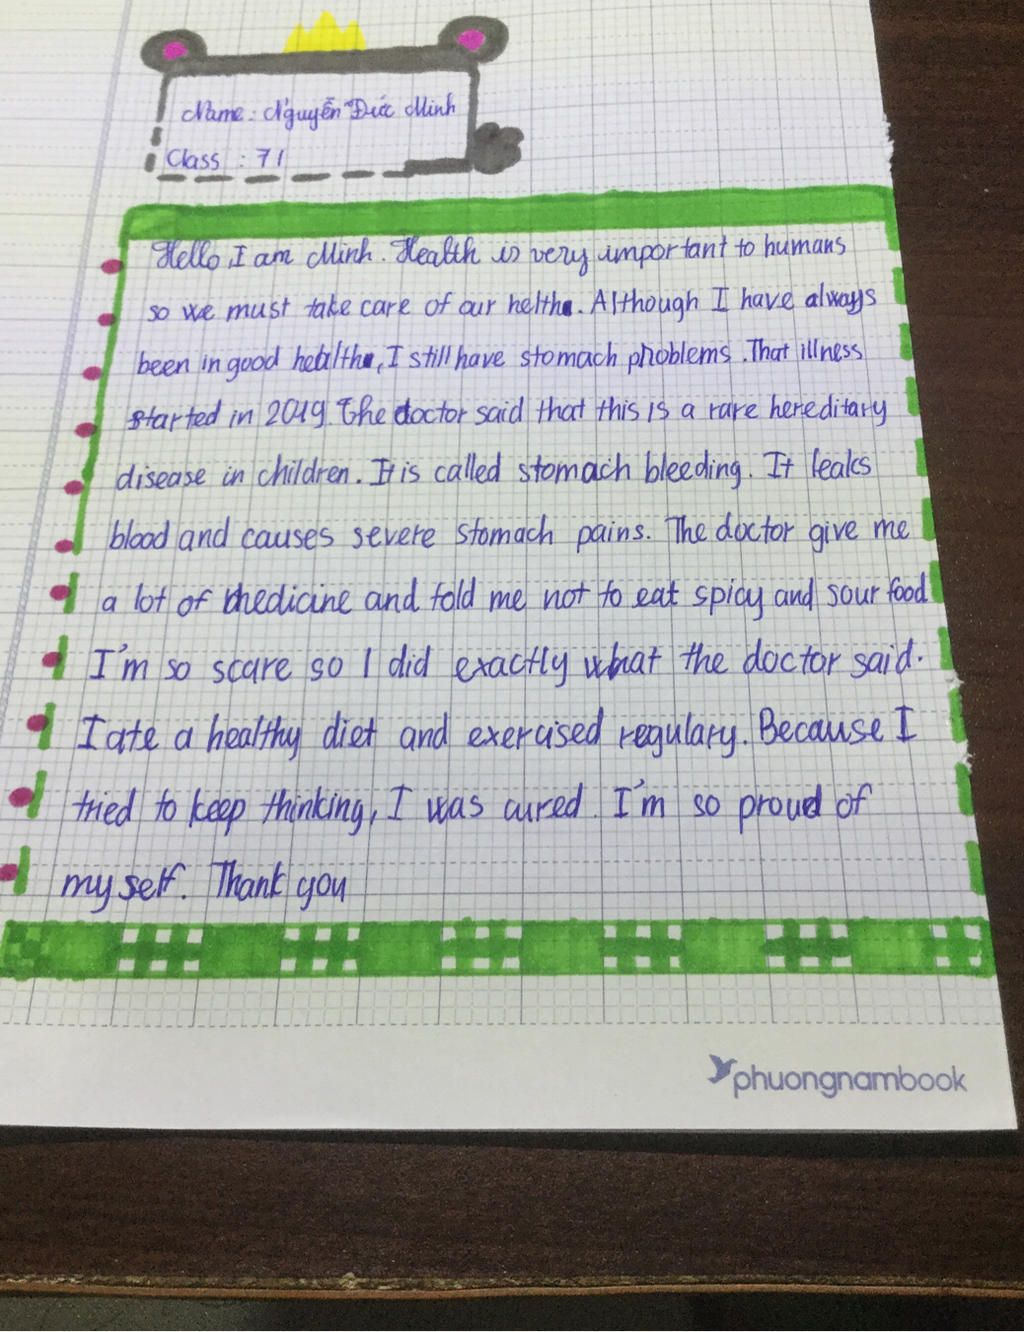 Name : Nguyễn Đức Minh
Class : 71
Hello, I am Minh. Health is very important to humans
so we must take care of our helth. Although I have always
been in good health, I still have stomach problems. That illness
started in 2019. The doctor said that this is a rare hereditary
disease in children. It is called stomach bleeding. It leaks
blood and causes severe stomach pains. The doctor give me
a lot of medicine and told me not to eat spicy and sour food
I'm so scare so I did exactly what the doctor said.
I ate a healthy diet and exercised regulary. Because I
tried to keep thinking, I was cured. I'm so proud of
my self. Thank you
phuongnambook